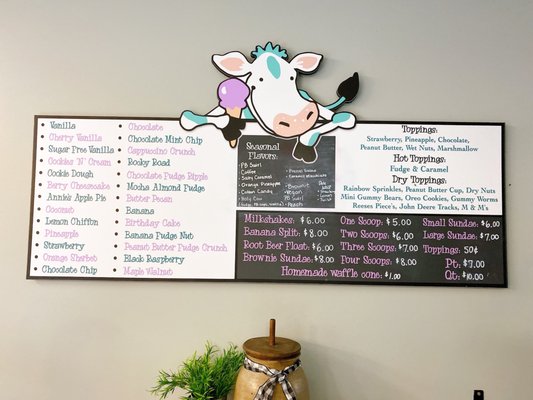 Vanilla
Cherry Vanilla
Sugar Free Vanilla
Cookies 'N' Cream
Cookie Dough
Berry Cheesecake
Annie's Apple Pie
Coconut
Lemon Chiffon
Pineapple
Strawberry
Orange Sherbet
Chocolate Chip
Chocolate
Mint Chocolate Chip
Cappuccino Crunch
Rocky Road
Chocolate Fudge Ripple
Mocha Almond Fudge
Butter Pecan
Banana
Birthday Cake
Banana Fudge Nut
Peanut Butter Fudge Crunch
Black Raspberry
Maple Walnut
Seasonal
Flavors:
PB Swirl
Coffee
Salty Caramel
Orange Pineapple
Cotton Candy
Holy Cow
Toppings:
Strawberry, Pineapple, Chocolate,
Peanut Butter, Wet Nuts, Marshmallow
Hot Toppings:
Fudge & Caramel
Dry Toppings:
Rainbow Sprinkles, Peanut Butter Cup, Dry Nuts
Mini Gummy Bears, Oreo Cookies, Gummy Worms
Reeses Piece's, John Deere Tracks, M & M's
Milkshakes: $6.00
Banana Split: $8.00
Root Beer Float: $6.00
Brownie Sundae: $8.00
One Scoop: $5.00
Two Scoops: $6.00
Three Scoops: $7.00
Four Scoops: $8.00
Small Sundae: $6.00
Large Sundae: $7.00
Toppings: 50¢
Pt: $7.00
Qt: $10.00
Homemade waffle cone: $1.00